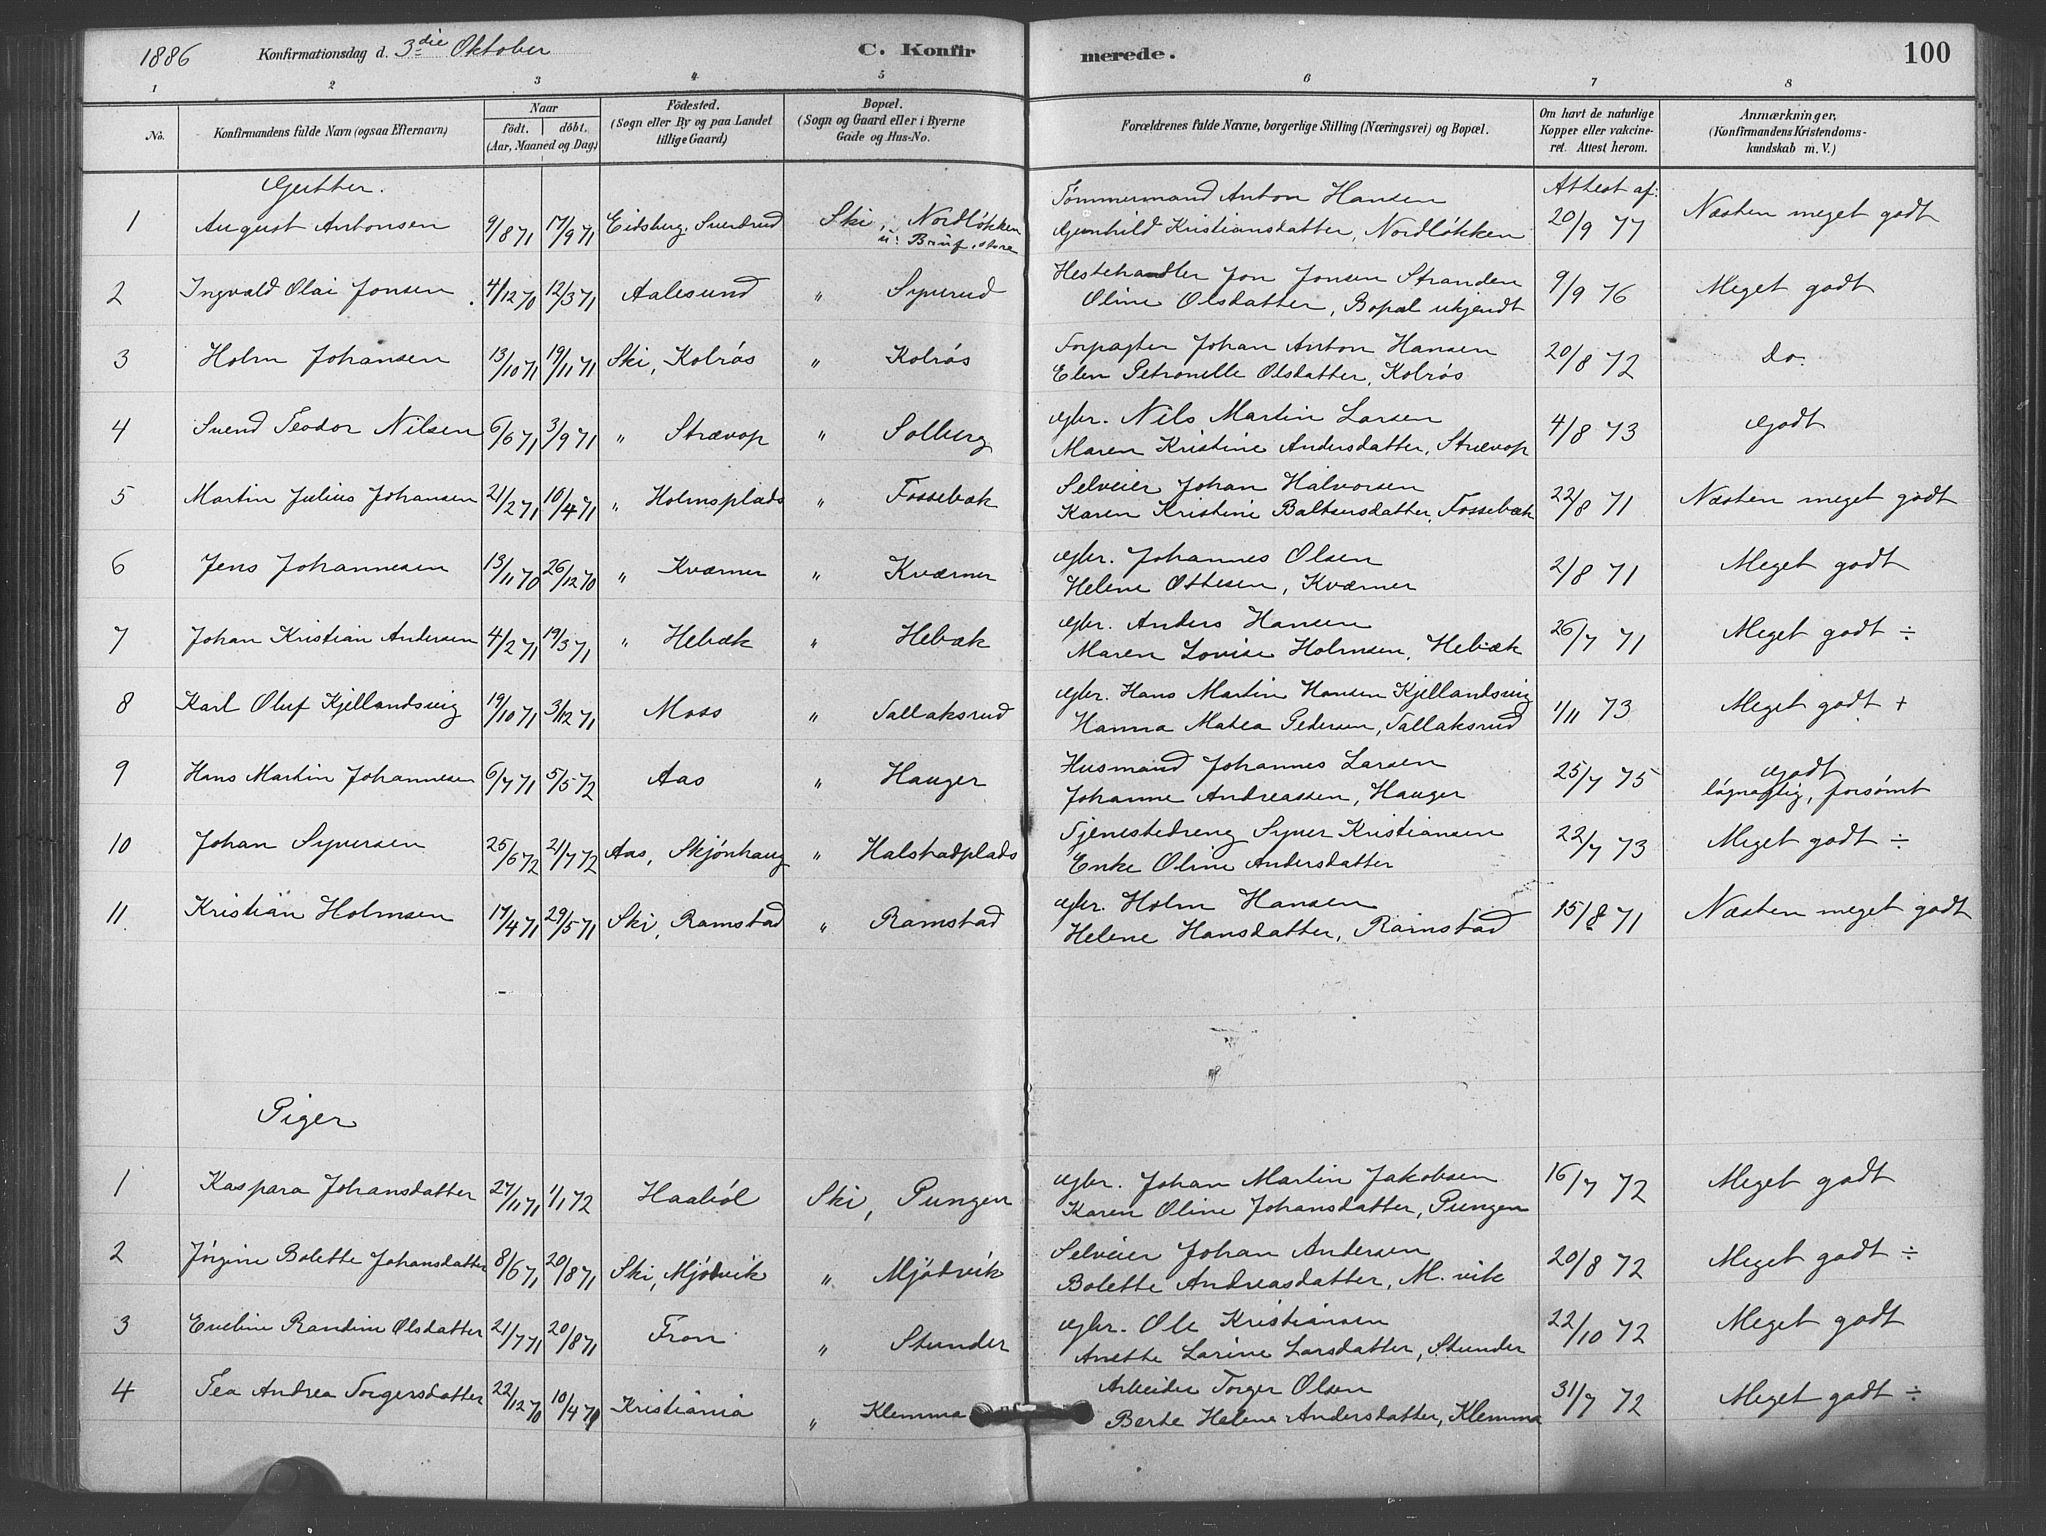 1886 Konfirmationsdag d. 3die Oktober C. Konfirmerede. 100
1 2 3 4 5 6 7 8
No. Konfirmandens fulde Navn (ogsaa Efternavn) Naar født. døbt. (Aar, Maaned og Dag) Födested. (Sogn eller By og paa Landet tillige Gaard) Bopæl. (Sogn og Gaard eller i Byerne Gade og Hus-No. Forældrenes fulde Navne, borgerlige Stilling (Næringsvei) og Bopæl. Om havt de naturlige Kopper eller vakcineret. Attest herom. Anmærkninger, (Konfirmandens Kristendomskundskab m. V.)
Gutter. Attest af:
1 August Antonsen 9/8 71 17/9 71 Eidsberg, Ski, Nordløkken Tømmermand Anton Hansen 20/9 77 Næsten meget godt
Gunhild Kristiansdatter, Nordløkken
2 Ingvald Olai Jonsen 4/12 70 12/3 71 Aalesund " Syverud Hestehandler Jon Jonsen Stranden 9/9 76 Meget godt
Oline Olsdatter, Bopæl ukjendt
3 Holm Johansen 13/10 71 19/11 71 Ski, Kolrøs " Kolrøs Forpagter Johan Anton Hansen 20/8 72 do.
Elen Petronelle Olsdatter, Kolrøs
4 Svend Teodor Nilsen 6/6 71 3/9 71 " Strævop " Solberg gbr. Nils Martin Larsen 4/8 73 Godt
Maren Kristine Andersdatter, Strævop
5 Martin Julius Johansen 21/2 71 16/4 71 " Holmsplads " Fossebæk Selveier Johan Halvorsen 22/8 71 Næsten meget godt
Karen Kristine Baltsersdatter, Fossebæk
6 Jens Johannesen 13/11 70 26/12 70 " Kværner " Kværner gbr. Johannes Olsen 2/8 71 Meget godt
Helene Ottesen, Kværner
7 Johan Kristian Andersen 4/2 71 19/3 71 " Hebæk " Hebæk gbr. Anders Hansen 26/7 71 Meget godt ÷
Maren Lovise Holmsen, Hebæk
8 Karl Oluf Kjellandsvig 19/10 71 3/12 71 Moss " Tallaksrud gbr. Hans Martin Hansen Kjellandsvig 1/11 73 Meget godt +
Hanna Matea Pedersen, Tallaksrud
9 Hans Martin Johannesen 6/7 71 5/5 72 Aas " Hauger Husmand Johannes Larsen 25/7 75 Godt
Johanne Andreassen, Hauger løgnagtig, forsømt
10 Johan Syversen 25/6 72 21/7 72 Aas, Skjønhaug " Halstadplads Tjenestedreng Syver Kristiansen 22/7 73 Meget godt ÷
Enke Oline Andersdatter
11. Kristian Holmsen 17/4 71 29/5 71 Ski, Ramstad " Ramstad gbr. Holm Hansen 15/8 71 Næsten meget godt
Helene Hansdatter, Ramstad
Piger
1 Kaspara Johansdatter 27/11 71 1/1 72 Haabøl Ski, Pungen gbr. Johan Martin Jakobsen 16/7 72 Meget godt
Karen Oline Johansdatter, Pungen
2 Jørgine Bolette Johansdatter 8/6 71 20/8 71 Ski, Mjødvik " Mjødvik Selveier Johan Andersen 20/8 72 Meget godt ÷
Bolette Andreasdatter, M.vik
3 Eveline Randine Olsdatter 21/7 71 20/8 71 Fron " Stunder gbr. Ole Kristiansen 22/10 72 Meget godt
Anette Larine Larsdatter, Stunder
4 Tea Andrea Torgersdatter 22/12 70 10/4 71 Kristiania " Klemma Arbeider Torger Olsen 31/7 72 Meget godt ÷
Berte Helene Andersdatter, Klemma